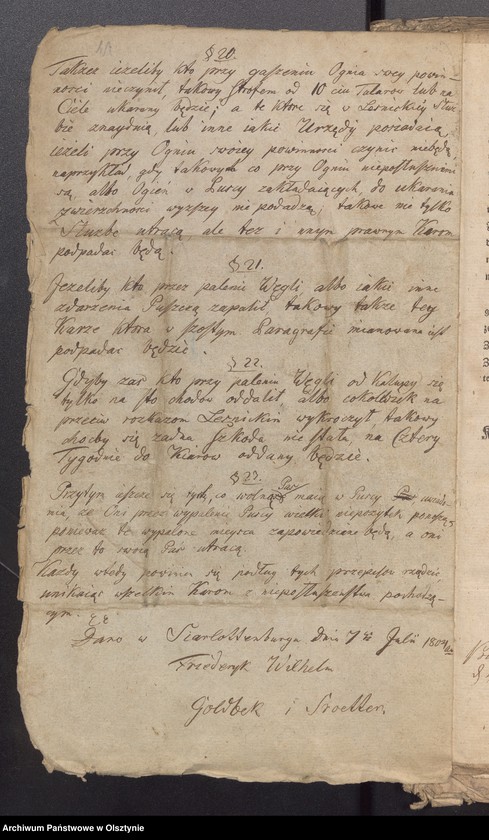 § 20.
Takzee iezeliby kto przy gaszeniu Ognia swey powin-
nosci nieczynił, takowy Strofem od 10 ciu Talarow lub na
Ciele ukarany będzie; a te ktore się w Lesnickiey Służ
bie znayduią, lub inne iakie Urzędy posiadaią
iezeli przy Ogniu swoiey powinnosci czynic niebędą
naprzykład, gdy takowych co przy Ogniu nieposłusznemi
są, albo Ogień w Puscy zakładaiących, do ukarania
zwierzchnosci wyzszey nie podadzą; takowe nie tylko
Służbę utracą ale tez i innym prawnym Karom
podpadac będą.
§ 21.
Jezeliby kto przez palenie Węgli albo iakie inne
zdarzenia Puszczą zapalił, takowy takze tey
Karze ktora w szostym Paragrafie mianowana iest
podpadac będzie.
§ 22.
Gdyby zas kto przy paleniu Węgli od Kalupy się
tylko na sto chodow oddalił, albo cokolwiek na
przeciw rozkazom Lesnickim wykroczył, takowy
chocby się zadna szkoda nie stała, na Cztery
Tygodnie do Kiarow oddany będzie.
§ 23.
Przytym się tych, co wolną Paszą maią w Puscy
nia, ze Oni przez wypalenie Puscy wielki nieporzytek ponoszą,
poniewaz te wypalone mieysca zapowiedziane będą, a oni
przez to swoią Paszą utracą.
Kazdy wtedy powinien się podług tych przepisow rządzić,
unikaiąc wszelkim Karom z nieposłuszenstwa pochodzą-
cym.
Dano w Szarlottenburgu Dnia 7 Julii 1804
Friederyk Wilhelm
Goldbek i Sroetter.
Archiwum Państwowe w Olsztynie